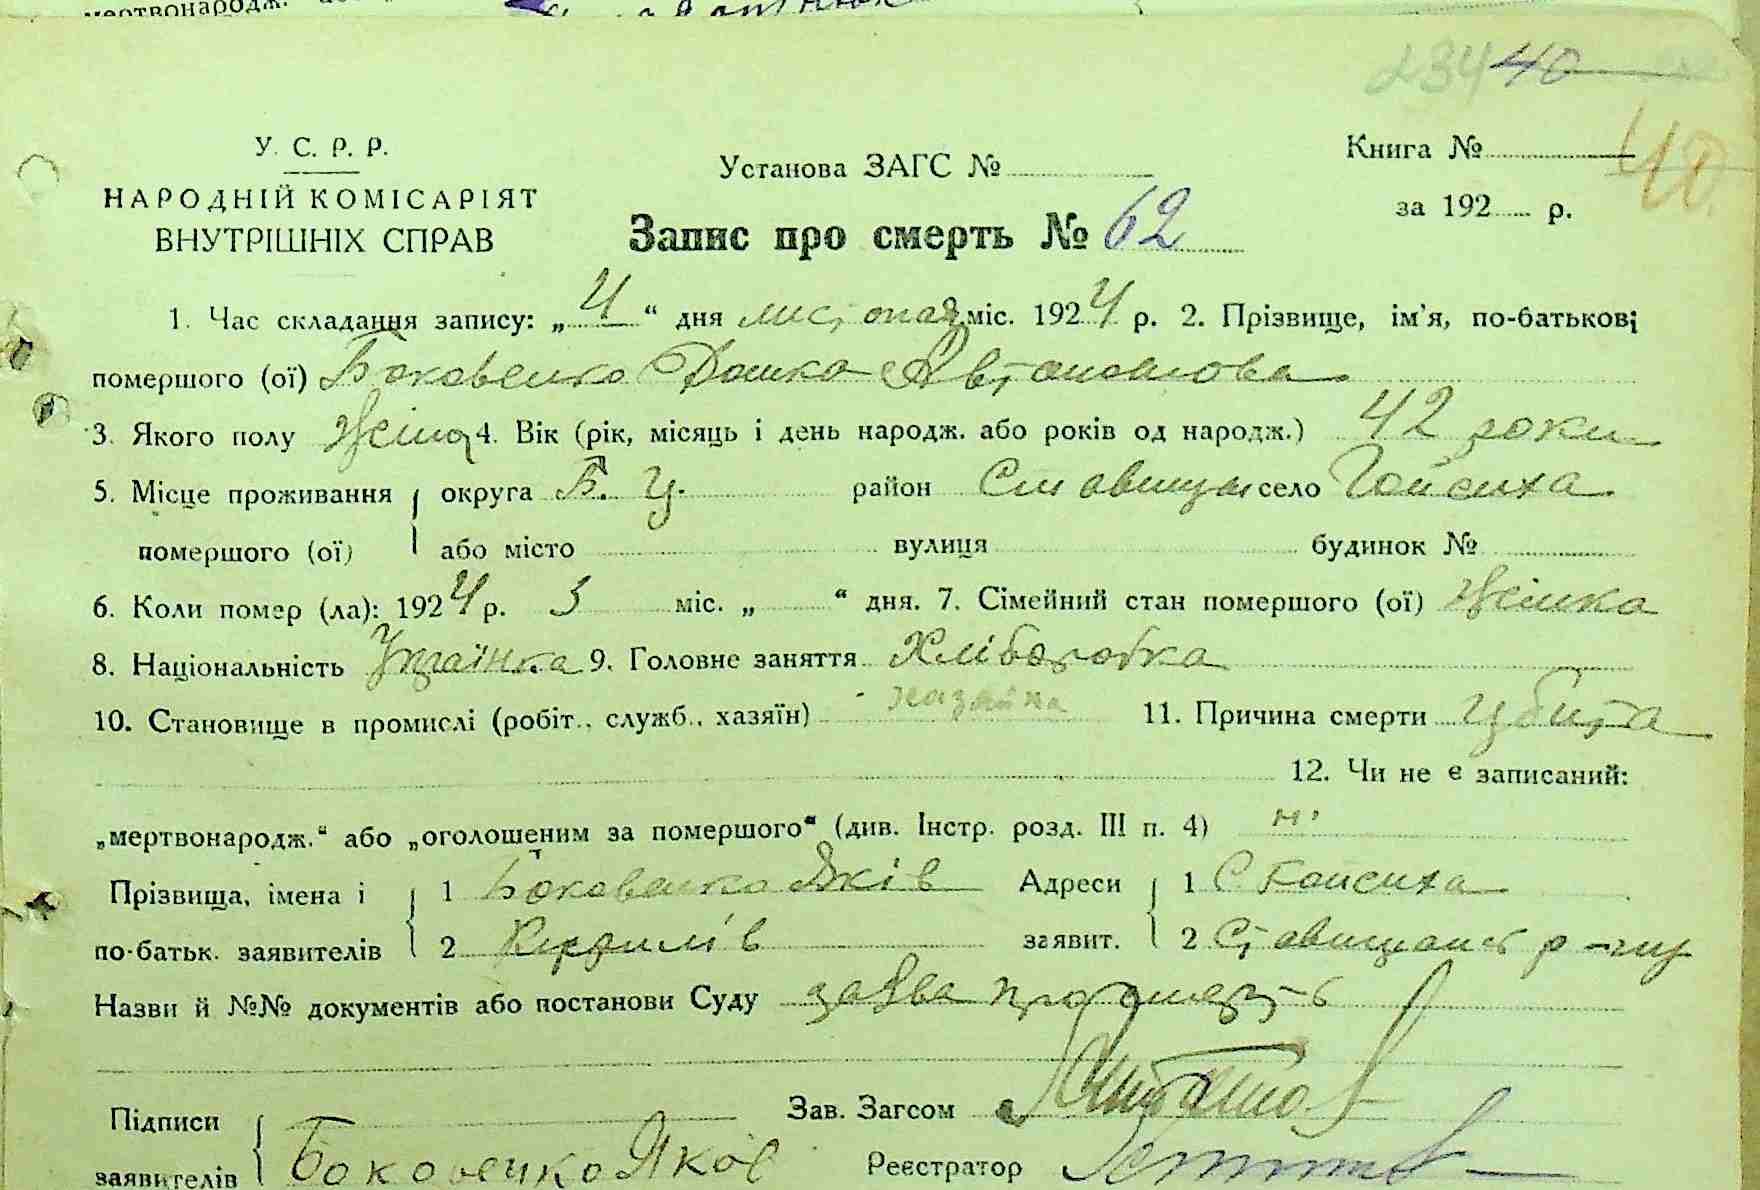 40
У. С. Р. Р.
НАРОДНІЙ КОМІСАРІЯТ
ВНУТРІШНІХ СПРАВ
Установа ЗАГС №
Книга № 40
за 192 р.
Запис про смерть № 62
1. Час складання запису: „4“ дня листопад міс. 1924 р. 2. Прізвище, ім'я, по-батькові
помершого (ої) Боковенко Домка Автономова
3. Якого полу жіноч 4. Вік (рік, місяць і день народж. або років од народж.) 42 роки
5. Місце проживання округа Б. Ц. район Ставищан село Гойсиха
помершого (ої) або місто вулиця будинок №
6. Коли помер (ла): 1924 р. 3 міс. „ “ дня. 7. Сімейний стан помершого (ої) жінка
8. Національність Українка 9. Головне заняття Хліборобка
10. Становище в промислі (робіт., служб., хазяїн) хазяйка 11. Причина смерти убита
12. Чи не є записаний:
„мертвонародж.“ або „оголошеним за помершого“ (див. Інстр. розд. III п. 4) ні
Прізвища, імена і 1 Боковенко Яків Адреси 1 С. Гойсиха
по-батьк. заявителів 2 Кирилів заявит. 2 Ставищанс р-ну
Назви й №№ документів або постанови Суду заява про смерть
Зав. Загсом
Підписи
заявителів Боковенко Яков Реєстратор